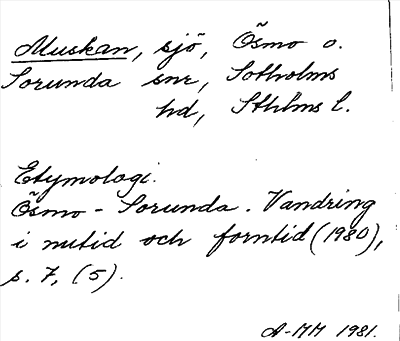 Muskan, sjö, Ösmo o.
Sorunda snr, Sotholms
hd, Sthlms l.
Etymologi.
Ösmo - Sorunda. Vandring
i nutid och forntid (1980),
s. 7, (5).
A-MM 1981.